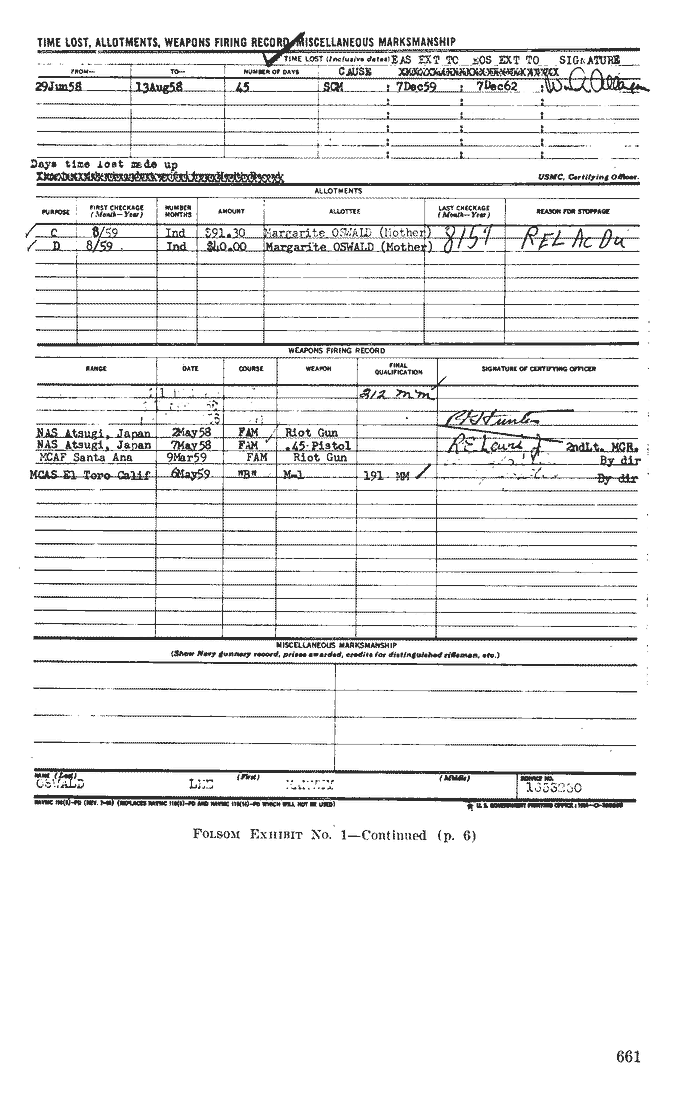 TIME LOST, ALLOTMENTS, WEAPONS FIRING RECORD, MISCELLANEOUS MARKSMANSHIP
TIME LOST (Inclusive dates) EAS EXT TO EOS EXT TO SIGNATURE
FROM— TO— NUMBER OF DAYS CAUSE
29Jun58 13Aug58 45 SCM 7Dec59 7Dec62
Days time lost made up
USMC, Certifying Officer.
ALLOTMENTS
PURPOSE FIRST CHECKAGE (Month—Year) NUMBER MONTHS AMOUNT ALLOTTEE LAST CHECKAGE (Month—Year) REASON FOR STOPPAGE
C 8/59 Ind $91.30 Margarite OSWALD (Mother) 8/59 REL AC DU
D 8/59 Ind $40.00 Margarite OSWALD (Mother)
WEAPONS FIRING RECORD
RANGE DATE COURSE WEAPON FINAL QUALIFICATION SIGNATURE OF CERTIFYING OFFICER
212 MM
NAS Atsugi, Japan 2May58 FAM Riot Gun
NAS Atsugi, Japan 7May58 FAM .45 Pistol 2ndLt. MCR.
MCAF Santa Ana 9Mar59 FAM Riot Gun By dir
MCAS El Toro Calif 6May59 "B" M-1 191 MM By dir
MISCELLANEOUS MARKSMANSHIP
(Show Navy gunnery record, prizes awarded, credits for distinguished rifleman, etc.)
NAME (Last) (First) (Middle) SERVICE NO.
OSWALD LEE HARVEY 1653230
FOLSOM EXHIBIT No. 1—Continued (p. 6)
661